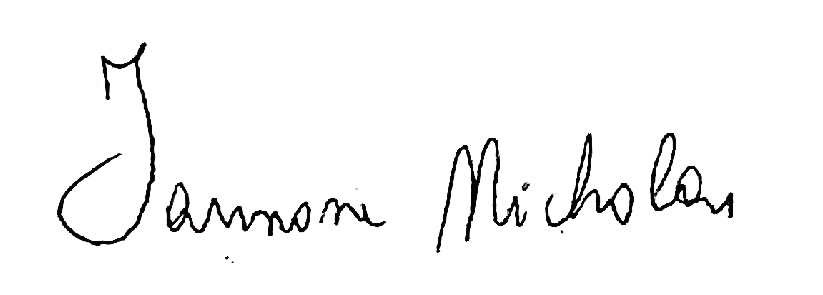 Iannone Nicholas